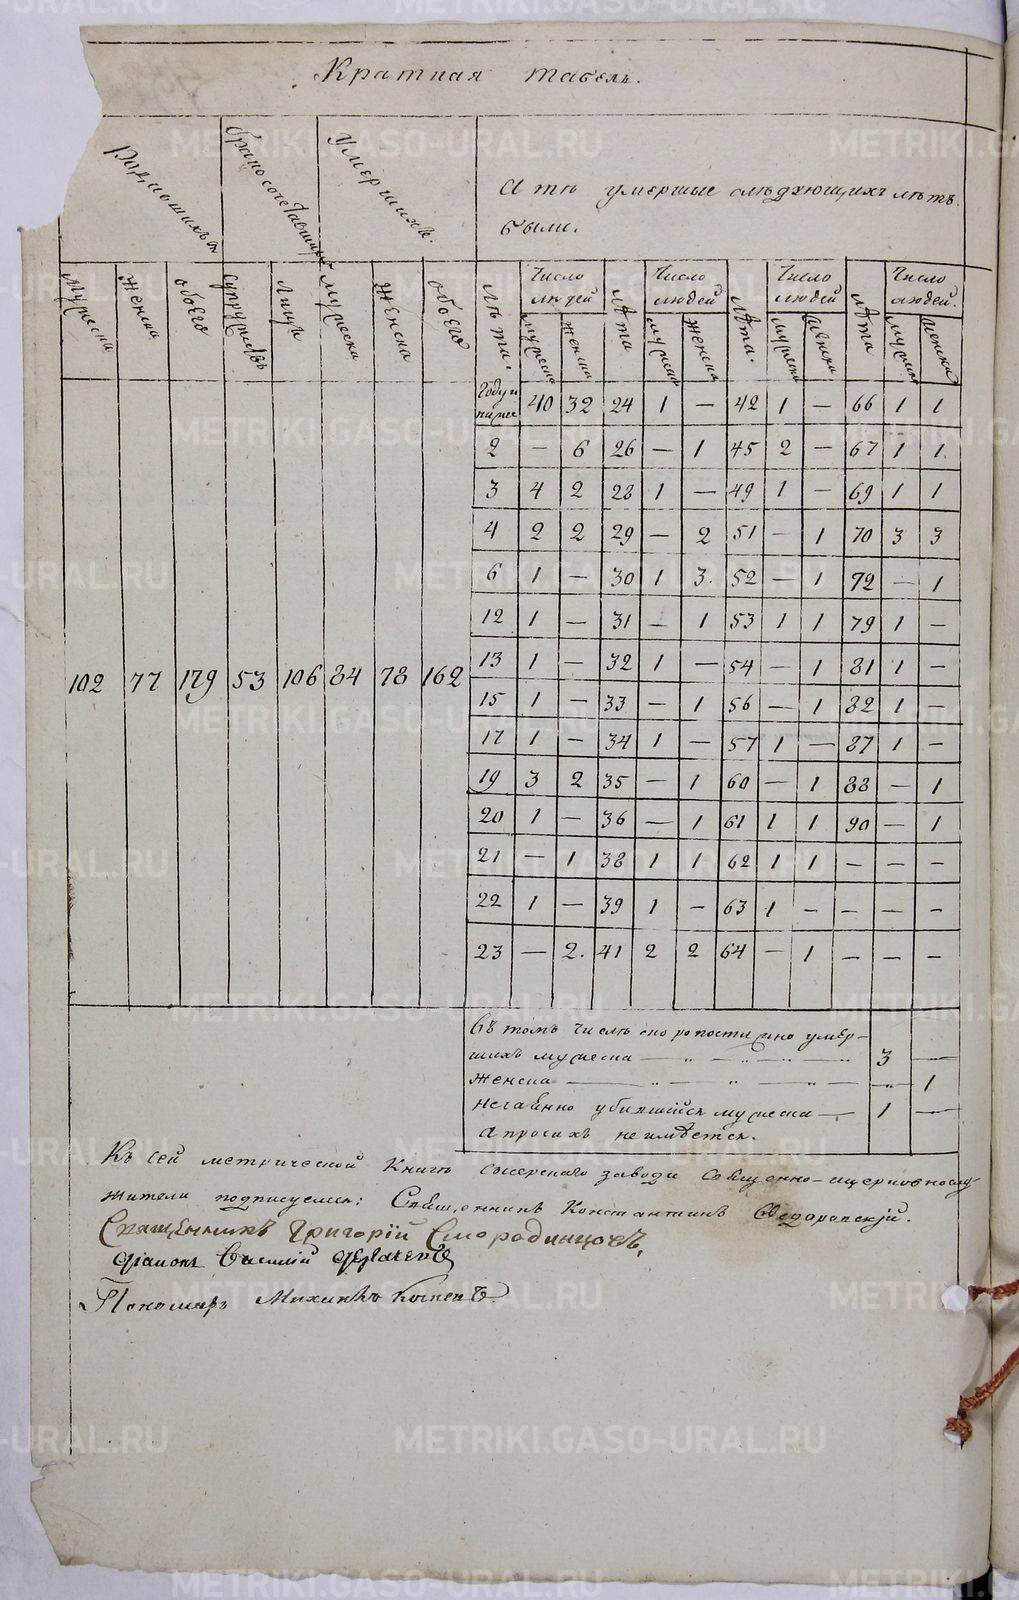 Краткая табель.
Родившихся
Бракосочетавшихся
Умершихъ.
А тѣ умершые слѣдующихъ лѣтъ были.
Мужеска Женска обоего супружествъ Лицъ мужеска Женска обоего
Лѣта. Число людей Лѣта Число людей Лѣта. Число людей Лѣта Число людей.
мужеска женска мужеска женска мужеска женска мужеска женска
102 77 179 53 106 84 78 162
Году и 40 32 24 1 — 42 1 — 66 1 1
2 — 6 26 — 1 45 2 — 67 1 1.
3 4 2 28 1 — 49 1 — 69 1 1
4 2 2 29 — 2 51 — 1 70 3 3
6 1 — 30 1 3. 52 — 1 72 — 1
12 1 — 31 — 1 53 1 1 79 1 —
13 1 — 32 1 — 54 — 1 81 1 —
15 1 — 33 — 1 56 — 1 82 1 —
17 1 — 34 1 — 57 1 — 87 1 —
19 3 2 35 — 1 60 — 1 88 — 1
20 1 — 36 — 1 61 1 1 90 — 1
21 — 1 38 1 1 62 1 1 — — —
22 1 — 39 1 — 63 1 — — — —
23 — 2. 41 2 2 64 — 1 — — —
Въ томъ числѣ скоропостижно умер-
шихъ мужеска — „ — „ — „ — „ 3 —
Женска — „ — „ — „ — „ 1
Нечаянно убившійся мужеска — 1 —
а протчихъ неимѣется.
Къ сей метрической Книгѣ Сысерскаго завода Священно-ицерковнослу-
жители подписуемся: Священникъ Константинъ Ѳедоровскій.
Священникъ Григорій Смородинцовъ,
Діаконъ Василій
Пономарь Михаилъ
METRIKI.GASO-URAL.RU